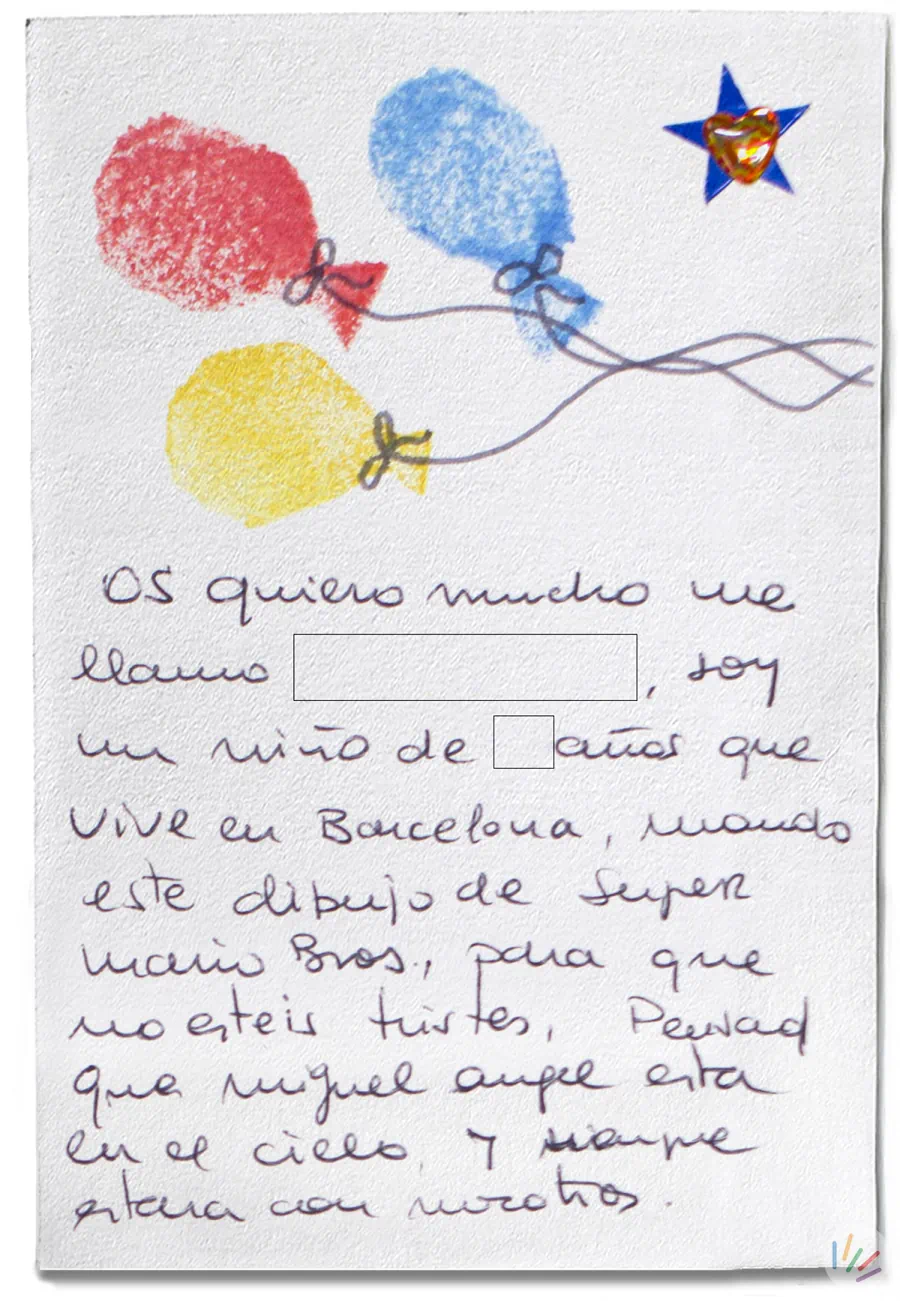 Os quiero mucho me
llamo , soy
un niño de años que
vive en Barcelona, mando
este dibujo de Super
Mario Bros., para que
no esteis tristes, Pensad
que miguel angel esta
en el cielo, y siempre
estara con nosotros.